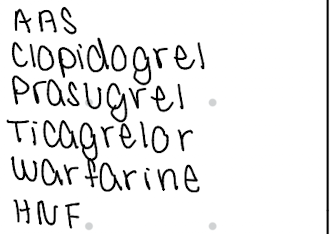 AAS
Clopidogrel
Prasugrel
Ticagrelor
Warfarine
HNF